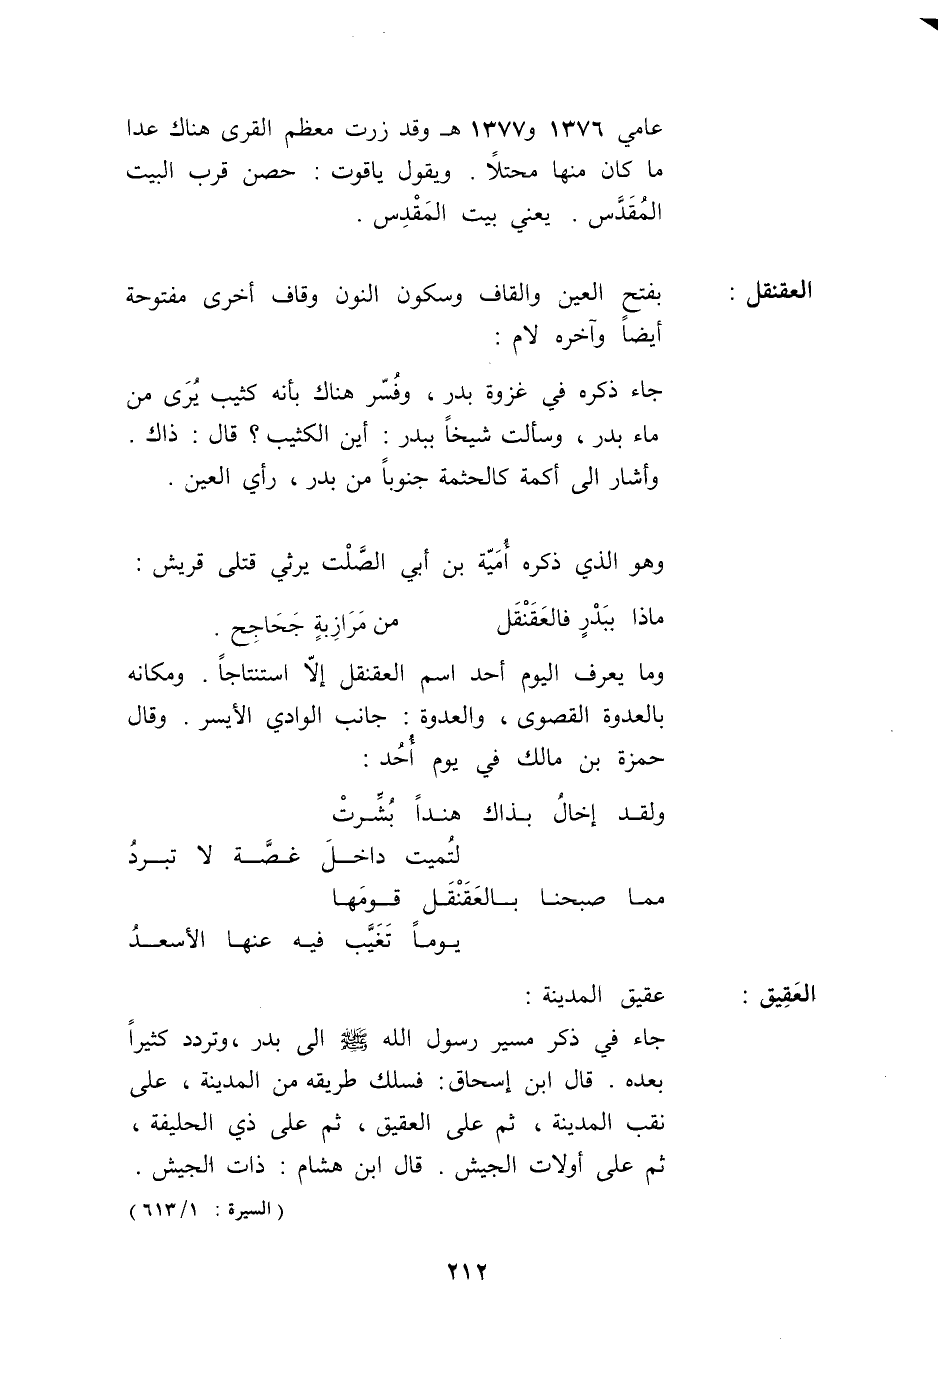 عامي ١٣٧٦ و١٣٧٧ هـ وقد زرت معظم القرى هناك عدا
ما كان منها محتلاً . ويقول ياقوت : حصن قرب البيت
المُقَدَّس . يعني بيت المَقْدِس .
العقنقل : بفتح العين والقاف وسكون النون وقاف أخرى مفتوحة
أيضاً وآخره لام :
جاء ذكره في غزوة بدر ، وفُسّر هناك بأنه كثيب يُرَى من
ماء بدر ، وسألت شيخاً ببدر : أين الكثيب ؟ قال : ذاك .
وأشار الى أكمة كالحثمة جنوباً من بدر ، رأي العين .
وهو الذي ذكره أُمَيّة بن أبي الصَّلْت يرثي قتلى قريش :
ماذا بِبَدْرٍ فالعَقَنْقَل من مَرَازِبةٍ جَحَاجِح .
وما يعرف اليوم أحد اسم العقنقل إلاّ استنتاجاً . ومكانه
بالعدوة القصوى ، والعدوة : جانب الوادي الأيسر . وقال
حمزة بن مالك في يوم أُحُد :
ولقد إخالُ بذاك هنداً بُشِّرتْ
لتُميت داخلَ غصَّة لا تبردُ
مما صبحنا بالعَقَنْقَل قومَها
يوماً تَغَيَّب فيه عنها الأسعدُ
العَقِيق : عقيق المدينة :
جاء في ذكر مسير رسول الله ﷺ الى بدر ،وتردد كثيراً
بعده . قال ابن إسحاق: فسلك طريقه من المدينة ، على
نقب المدينة ، ثم على العقيق ، ثم على ذي الحليفة ،
ثم على أولات الجيش . قال ابن هشام : ذات الجيش .
(السيرة : ٦١٣/١)
٢١٢